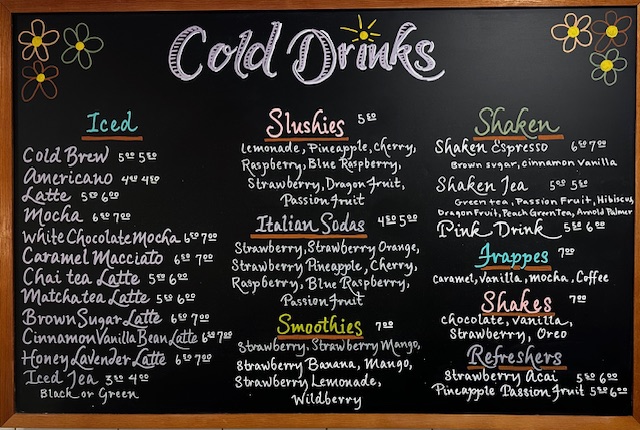 Cold Drinks
Iced
Cold Brew 5⁰⁰ 5⁵⁰
Americano 4⁰⁰ 4⁵⁰
Latte 5⁰⁰ 6⁰⁰
Mocha 6⁰⁰ 7⁰⁰
White Chocolate Mocha 6⁰⁰ 7⁰⁰
Caramel Macciato 6⁰⁰ 7⁰⁰
Chai tea Latte 5⁵⁰ 6⁰⁰
Matcha tea Latte 5⁵⁰ 6⁰⁰
Brown Sugar Latte 6⁰⁰ 7⁰⁰
Cinnamon Vanilla Bean Latte 6⁰⁰ 7⁰⁰
Honey Lavender Latte 6⁰⁰ 7⁰⁰
Iced Tea 3⁵⁰ 4⁰⁰
Black or Green
Slushies 5⁵⁰
Lemonade, Pineapple, Cherry,
Raspberry, Blue Raspberry,
Strawberry, Dragon fruit,
Passion fruit
Italian Sodas 4⁵⁰ 5⁰⁰
Strawberry, Strawberry Orange,
Strawberry Pineapple, Cherry,
Raspberry, Blue Raspberry,
Passion fruit
Smoothies 7⁰⁰
Strawberry, Strawberry Mango,
Strawberry Banana, Mango,
Strawberry Lemonade,
Wildberry
Shaken
Shaken Espresso 6⁰⁰ 7⁰⁰
Brown sugar, cinnamon vanilla
Shaken Tea 5⁰⁰ 5⁵⁰
Green tea, Passion Fruit, Hibiscus,
Dragon Fruit, Peach Green Tea, Arnold Palmer
Pink Drink 5⁵⁰ 6⁵⁰
frappes 7⁰⁰
caramel, Vanilla, mocha, Coffee
Shakes 7⁰⁰
chocolate, Vanilla,
Strawberry, Oreo
Refreshers
Strawberry Acai 5⁵⁰ 6⁰⁰
Pineapple Passion fruit 5⁵⁰ 6⁰⁰